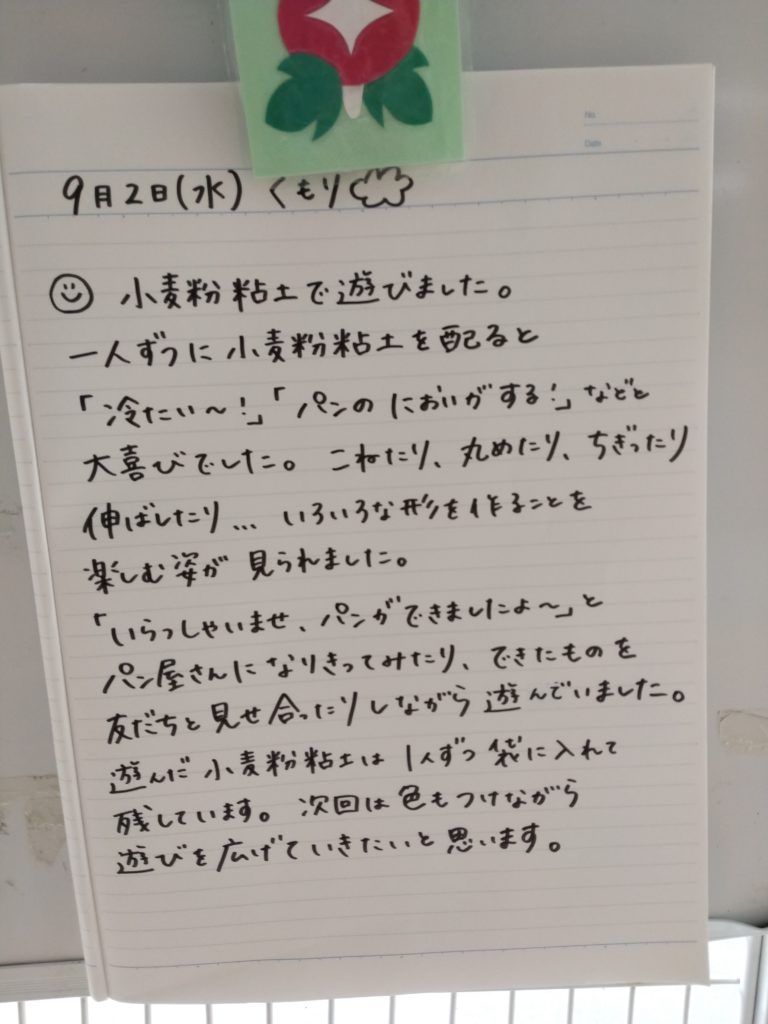 No.
Date
9月2日(水) くもり
小麦粉粘土で遊びました。
一人ずつに小麦粉粘土を配ると
「冷たい〜!」「パンのにおいがする!」などと
大喜びでした。こねたり、丸めたり、ちぎったり
伸ばしたり… いろいろな形を作ることを
楽しむ姿が見られました。
「いらっしゃいませ、パンができましたよ〜」と
パン屋さんになりきってみたり、できたものを
友だちと見せ合ったりしながら遊んでいました。
遊んだ小麦粉粘土は1人ずつ袋に入れて
残しています。次回は色もつけながら
遊びを広げていきたいと思います。